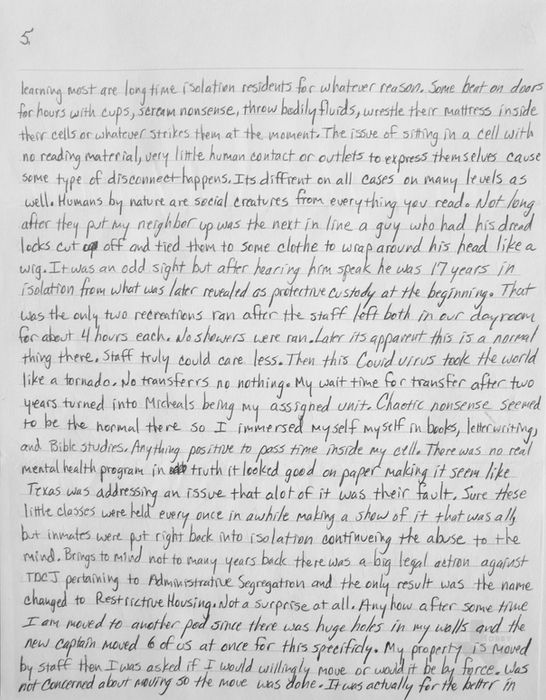 5.
learning most are long time isolation residents for whatever reason. Some beat on doors
for hours with cups, scream nonsense, throw bodily fluids, wrestle their mattress inside
their cells or whatever strikes them at the moment. The issue of sitting in a cell with
no reading material, very little human contact or outlets to express themselves cause
some type of disconnect happens. Its diffrent on all cases on many levels as
well. Humans by nature are social creatures from everything you read. Not long
after they put my neighbor up was the next in line a guy who had his dread
locks cut off and tied them to some clothe to wrap around his head like a
wig. It was an odd sight but after hearing him speak he was 17 years in
isolation from what was later revealed as protective custody at the beginning. That
was the only two recreations ran after the staff left both in our dayroom
for about 4 hours each. No showers were ran. Later its apparent this is a normal
thing there. Staff truly could care less. Then this Covid virus took the world
like a tornado. No transferrs no nothing. My wait time for transfer after two
years turned into Micheals being my assigned unit. Chaotic nonsense seemed
to be the normal there so I immersed myself myself in books, letter writing,
and Bible studies. Anything positive to pass time inside my cell. There was no real
mental health program in truth it looked good on paper making it seem like
Texas was addressing an issue that alot of it was their fault. Sure these
little classes were held every once in awhile making a show of it that was all,
but inmates were put right back into isolation continueing the abuse to the
mind. Brings to mind not to many years back there was a big legal action against
TDCJ pertaining to Administrative Segregation and the only result was the name
changed to Restrictive Housing. Not a surprise at all. Any how after some time
I am moved to another pod since there was huge holes in my walls and the
new captain moved 6 of us at once for this specificly. My property is moved
by staff then I was asked if I would willingly move or would it be by force. Was
not concerned about moving so the move was done. It was actually for the better in